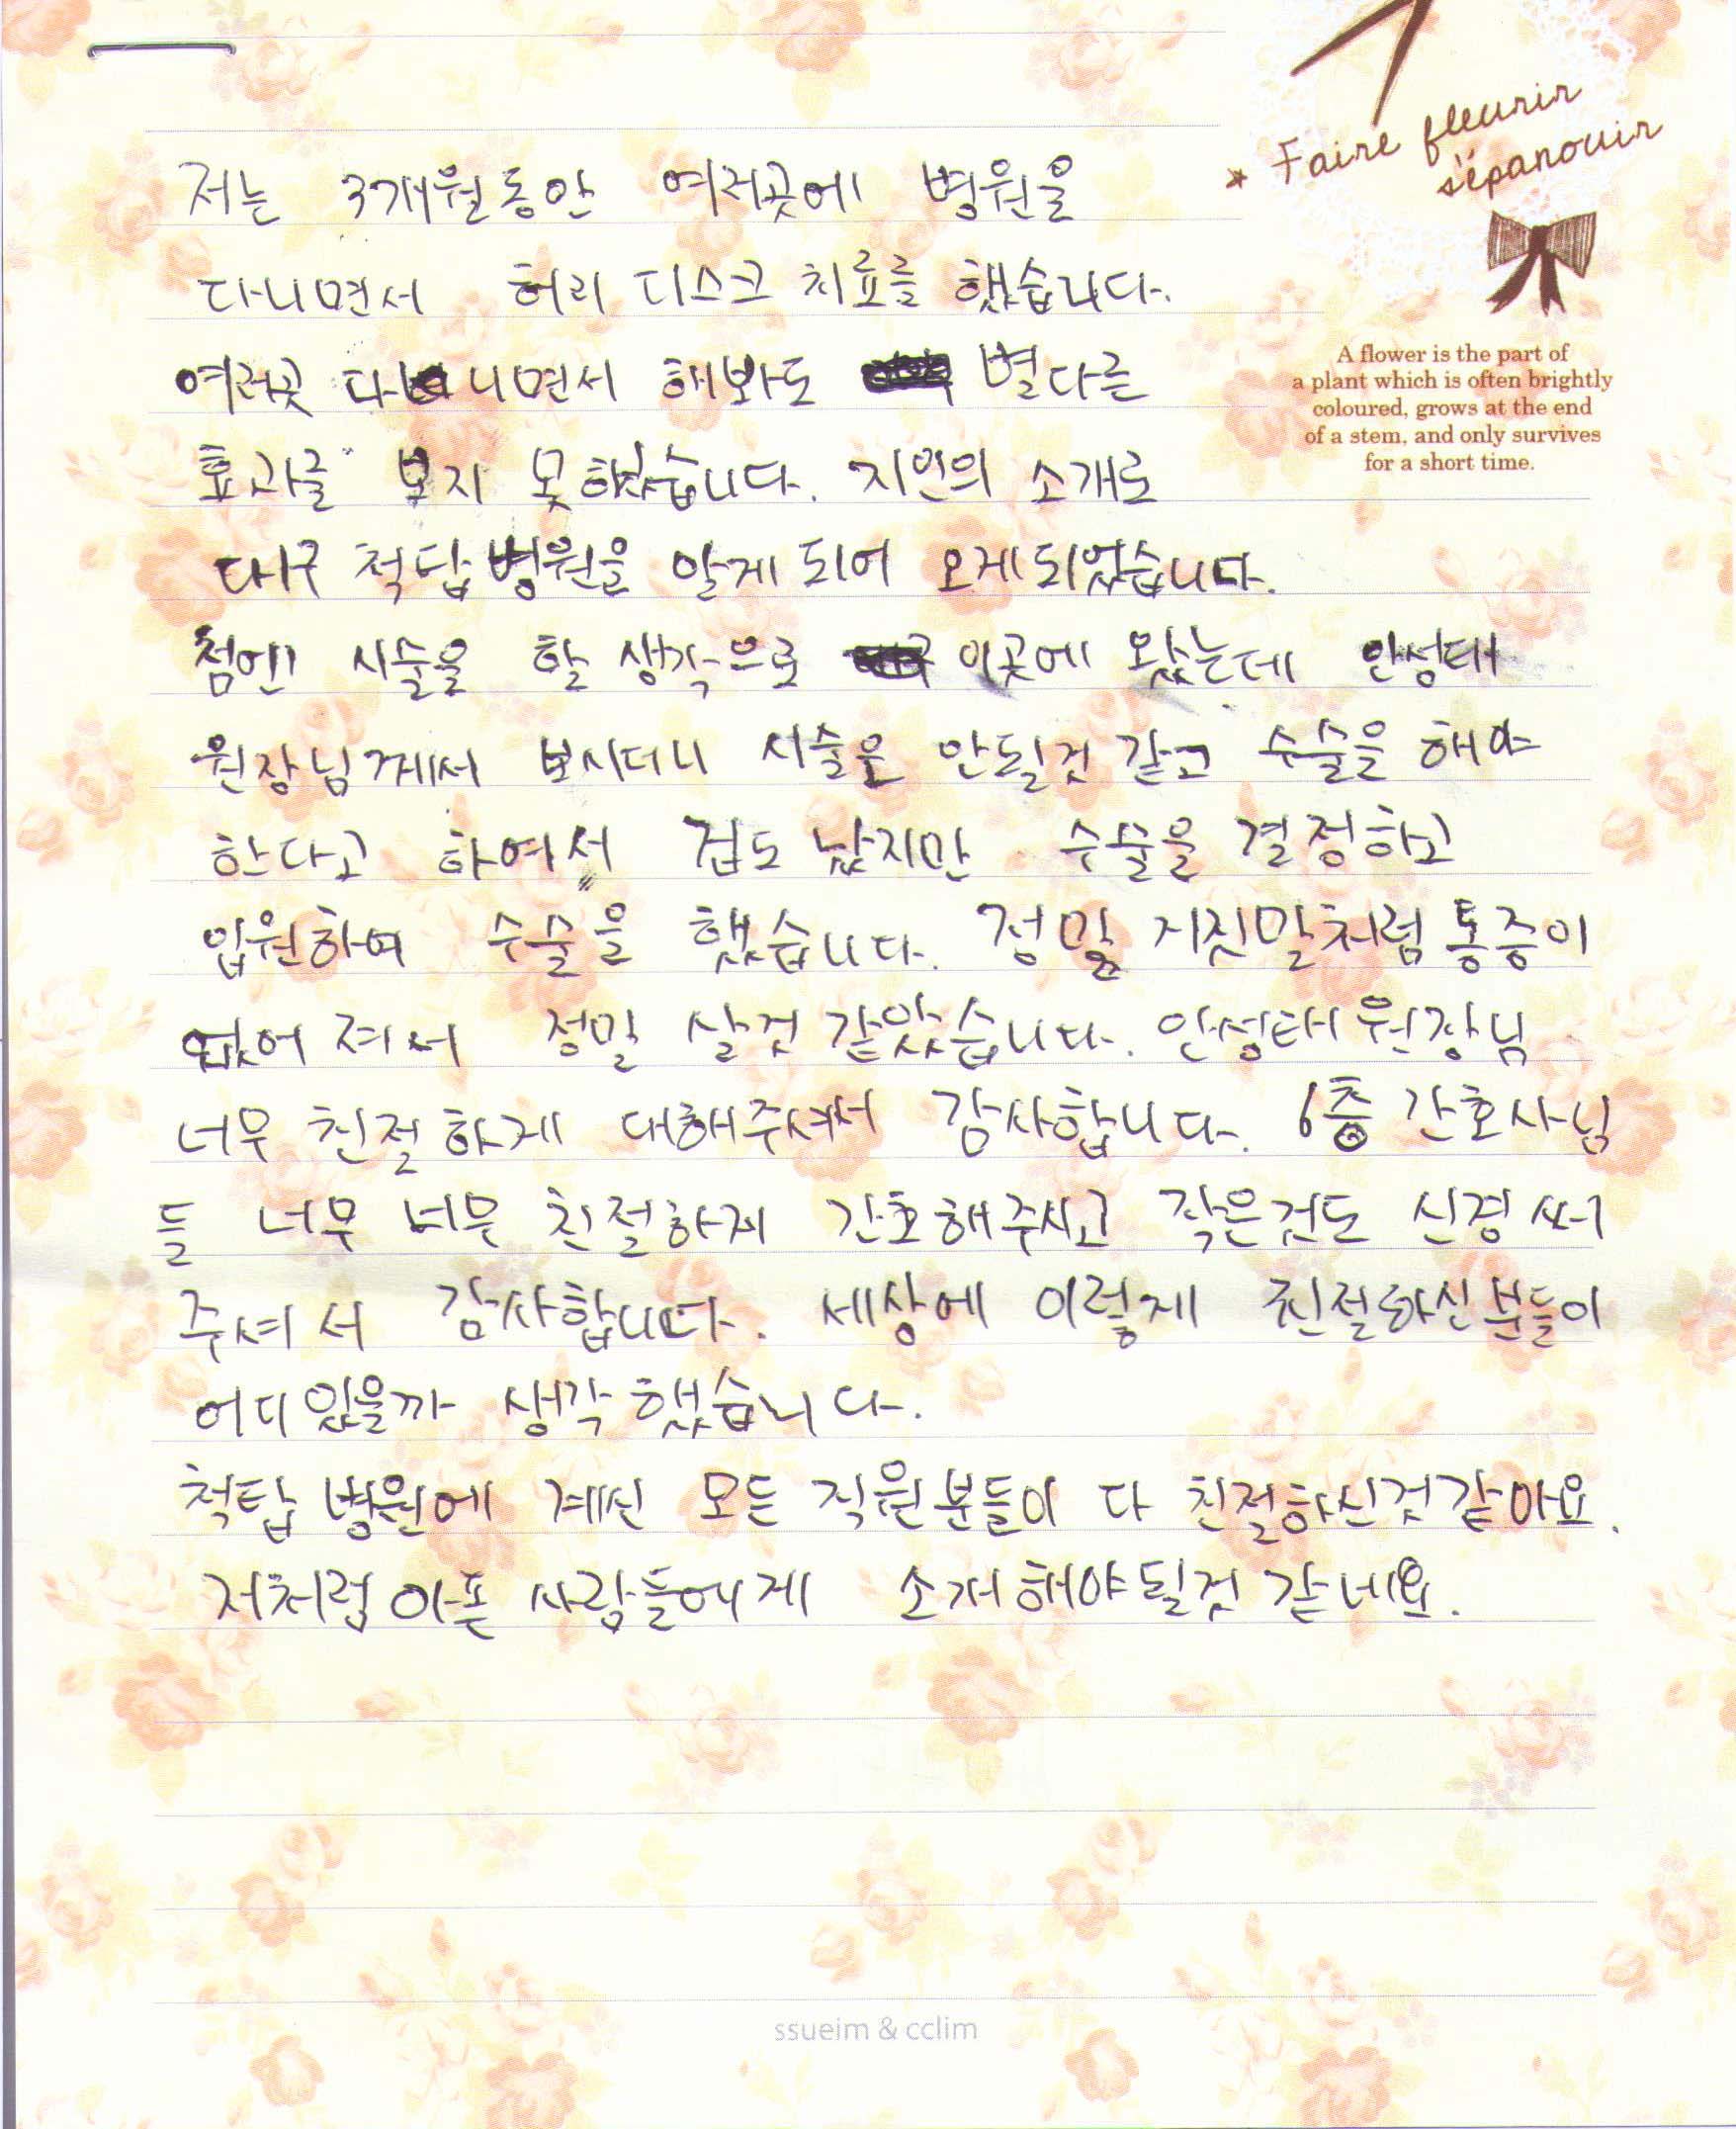 Faire fleurir
s'épanouir
A flower is the part of
a plant which is often brightly
coloured, grows at the end
of a stem, and only survives
for a short time.
저는 3개월동안 여러곳에 병원을
다니면서 허리 디스크 치료를 했습니다.
여러곳 다니면서 해봐도 별다른
효과를 보지 못했습니다. 지인의 소개로
대구 척탑병원을 알게되어 오게되었습니다.
첨엔 시술을 할 생각으로 이곳에 왔는데 안성태
원장님께서 보시더니 시술은 안될것 같고 수술을 해야
한다고 하여서 겁도 났지만 수술을 결정하고
입원하여 수술을 했습니다. 정말 거짓말처럼 통증이
없어져서 정말 살것 같았습니다. 안성태원장님
너무 친절하게 대해주셔서 감사합니다. 6층 간호사님
들 너무 너무 친절하게 간호해주시고 작은것도 신경써
주셔서 감사합니다. 세상에 이렇게 친절하신분들이
어디있을까 생각했습니다.
척탑 병원에 계신 모든 직원분들이 다 친절하신것같아요.
저처럼 아픈 사람들에게 소개해야될것 같네요.
ssueim & cclim